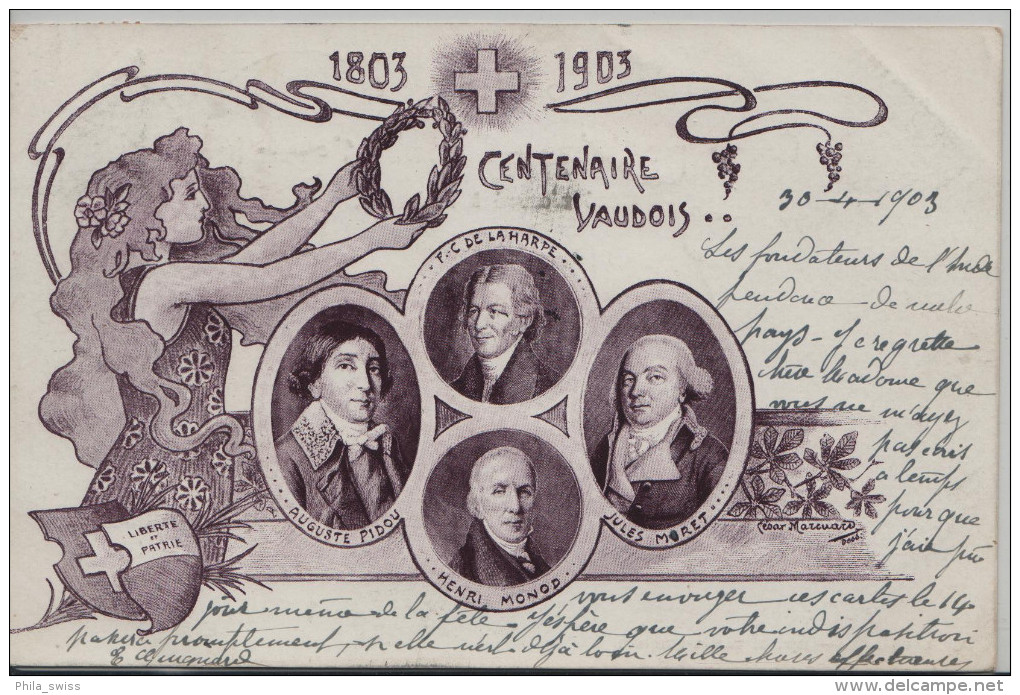 1803 1903
CENTENAIRE
VAUDOIS..
F.-C DE LA HARPE
AUGUSTE PIDOU
JULES MURET
HENRI MONOD
LIBERTE
ET
PATRIE
César Marcuard
30-4-1903
Les fondateurs de l'Indé
pendance de notre
pays - Je regrette
chère Madame que
vous ne m'ayez
pas écris
a temps
pour que
j'aie pu
vous envoyer ces cartes le 14
jour même de la fête - J'espère que votre indisposition
passera promptement, si elle n'est déjà loin. Mille choses affectueuses
Phila_swiss
delcampe.net